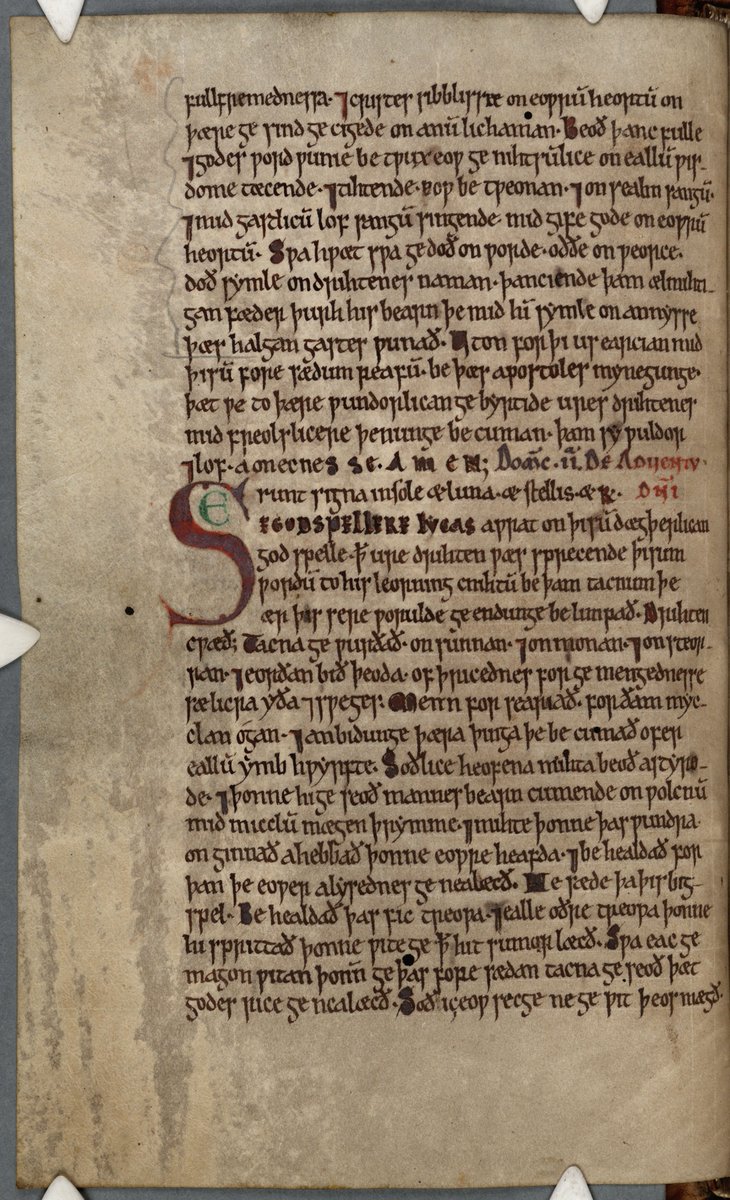 fullfremednessa. ⁊ cristes sibblisræ on eoƿrū heortū on
þære ge sind gecigede on anū lichaman. Beoð þancfulle
⁊ godes ƿord ƿunie betƿuxeoƿ genihtsūlice on eallū ƿis-
dome tæcende. ⁊ tihtende. eoƿ betƿeonan. ⁊ on sealm sangū.
⁊ mid gastlicū lof sangū singende. mid gife gode on eoƿrū
heortū. Sƿa hƿæt sƿa ge doð on ƿorde. oððe on ƿeorce.
doð symle on drihtenes naman. þanciende þam ælmihti-
gan fæder þurh his bearn þe mid hī symle on annysse
þæs halgan gastes ƿunað. Uton for þi us earcian mid
þisū fore sædum reafū. be þæs apostoles mynegunge.
þæt ƿe to þære ƿundorlican gebyrtide ures drihtenes
mid freolslicere þenunge becuman. þam sy ƿuldor
⁊ lof. a on ecnesse. AmeN; Domīc. ii. De Aduentu.
Erunt signa in sole & luna. & stellis. & R. Dñi
SE GODSPELLERE lucas aƿrat on þisū dægþerlican
godspelle. ꝥ ure drihten ƿæs sprecende þisum
ƿordū to his leorning cnihtū be þam tacnum þe
ær þissere ƿorulde geendunge belimpað. Drihten
cƿæð; Tacna geƿurðað. on sunnan. ⁊ on monan. ⁊ on steor-
ran. ⁊ eorðan bið þeoda. ofþriccednes for gemengednesse
sælicra yða ⁊ sƿeges. Menn forseariað. for ðam myc-
clan ogan. ⁊ anbidunge þæra þinga þe becumað ofer
eallū ymbhƿyrfte. Soðlice heofena mihta beoð astyre-
de. ⁊ þonne hi geseoð mannes bearn cumende on ƿolcnū
mid micclū mægenþrymme. ⁊ mihte þonne þas ƿundra
onginnað ahebbað þonne eoƿre heafda. ⁊ behealdað for
þan þe eoƿer alysednes genealæcð. He sæde þa þis big-
spel. Behealdað þas fic treoƿa. ⁊ ealle oðre treoƿa þonne
hi sprittað þonne ƿite ge ꝥ hit sumorlæcð. Sƿa eac ge
magon ƿitan þonn̄ ge þas foresædan tacna geseoð þæt
godes rice genealæcð. Soð ic eoƿ secge ne geƿit þeos mægð.